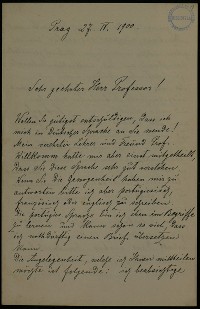 Prag 27. IV. 1900.
Sehr geehrter Herr Professor!
Wollen Sie gütigst entschuldigen, dass ich
mich in deutscher Sprache an Sie wende!
Mein verehrter Lehrer und Freund Prof.
Willkomm hatte mir aber einst mitgetheilt,
dass Sie diese Sprache sehr gut verstehen.
Wenn Sie die Gewogenheit haben mir zu
antworten bitte ich aber portugiesisch,
französisch oder englisch zu schreiben.
Die portugies. Sprache bin ich eben im Begriffe
zu lernen und kann schon so viel, dass
ich nothdürftig einen Brief übersetzen
kann.
Die Angelegenheit, welche ich Ihnen mittheilen
möchte ist folgende: ich beabsichtige